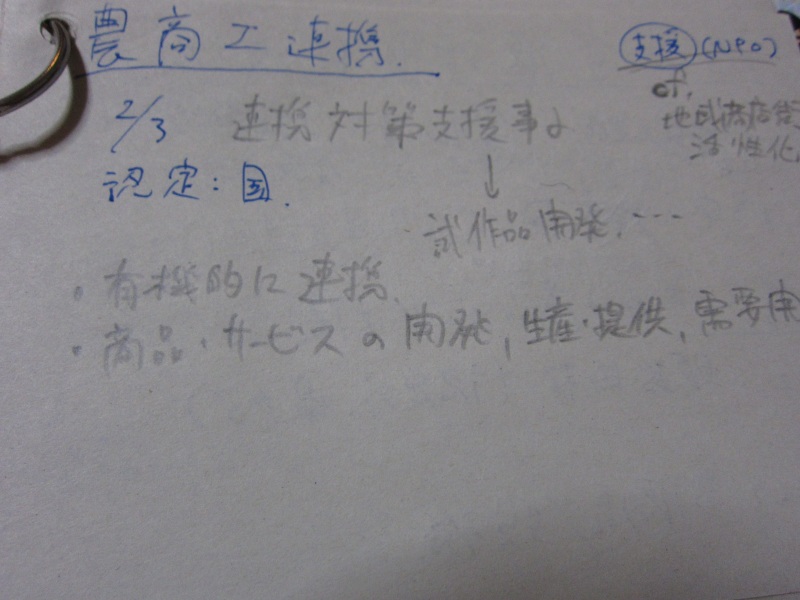 農商工連携. 支援(NPO)
cf.
地域商店街
活性化
2/3 連携対策支援事よ
認定:国.
↓
試作品開発.…
・有機的に連携.
・商品・サービスの開発,生産・提供,需要開